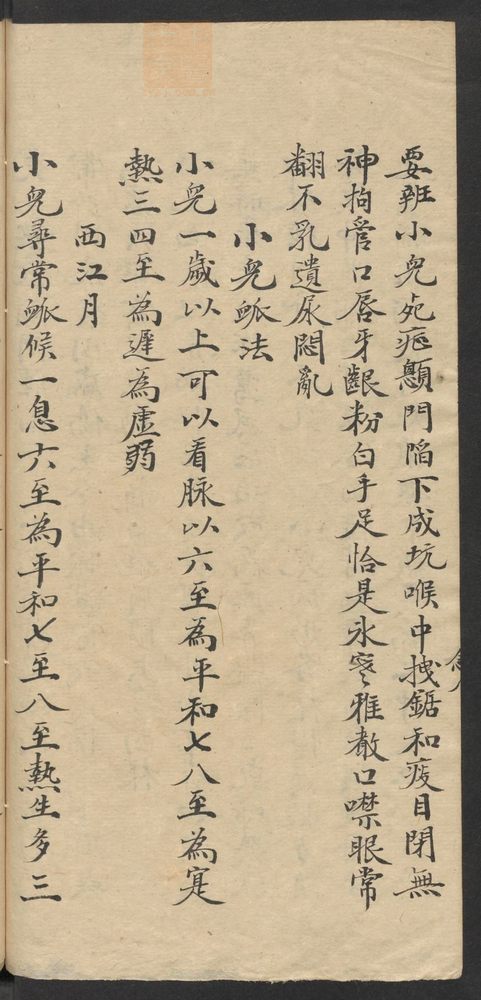 要辨小兒死症顖門陷下成坑喉中拽鋸和痰目閉無
神拘管口唇牙齦粉白手足恰是氷寒雅教口噤眼常
翻不乳遺尿悶亂
小兒脉法
小兒一歲以上可以看脉以六至為平和七八至為寔
熱三四至為遲為虛弱
西江月
小兒尋常脉候一息六至為平和七至八至熱生多三